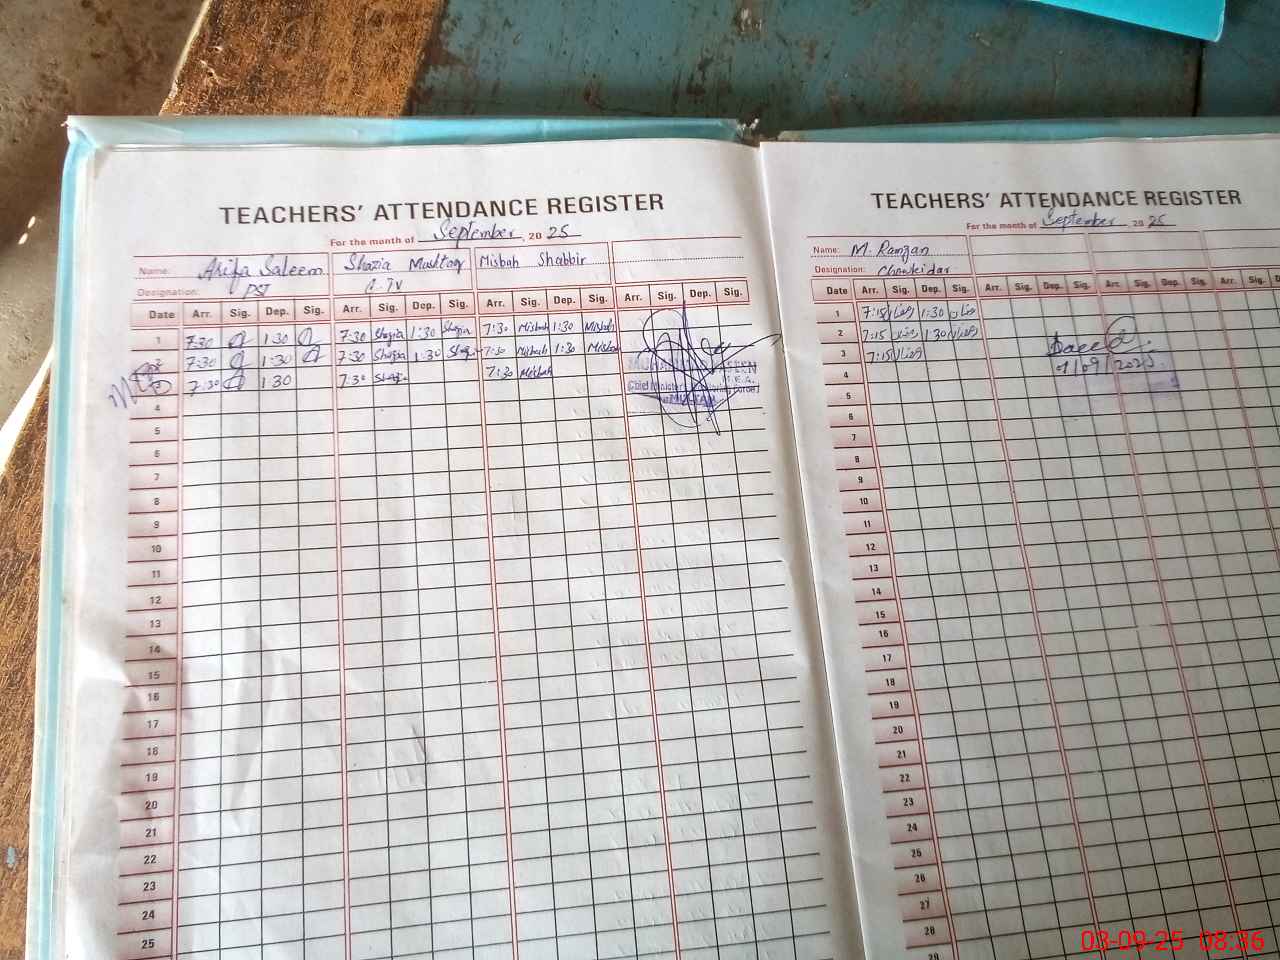 TEACHERS' ATTENDANCE REGISTER
For the month of September, 2025
Name: Arifa Saleem Shazia Mushtaq Misbah Shabbir
Designation: PST
Date Arr. Sig. Dep. Sig. Arr. Sig. Dep. Sig. Arr. Sig. Dep. Sig. Arr. Sig. Dep. Sig.
1 7:30 1:30 7:30 Shazia 1:30 Shazia 7:30 Misbah 1:30 Misbah
2 7:30 1:30 7:30 Shazia 1:30 Shazia 7:30 Misbah 1:30 Misbah
3 7:30 1:30 7:30 Shazia 7:30 Misbah
Chief Minister
4
5
6
7
8
9
10
11
12
13
14
15
16
17
18
19
20
21
22
23
24
25
TEACHERS' ATTENDANCE REGISTER
For the month of September, 2025
Name: M. Ramzan
Designation: Chowkidar
Date Arr. Sig. Dep. Sig. Arr. Sig. Dep. Sig. Arr. Sig. Dep. Sig. Arr. Sig.
1 7:15 رمضان 1:30 رمضان
2 7:15 رمضان 1:30 رمضان
3 7:15 رمضان
1/09/2025.
4
5
6
7
8
9
10
11
12
13
14
15
16
17
18
19
20
21
22
23
24
25
26
27
28
29
03-09-25 08:36